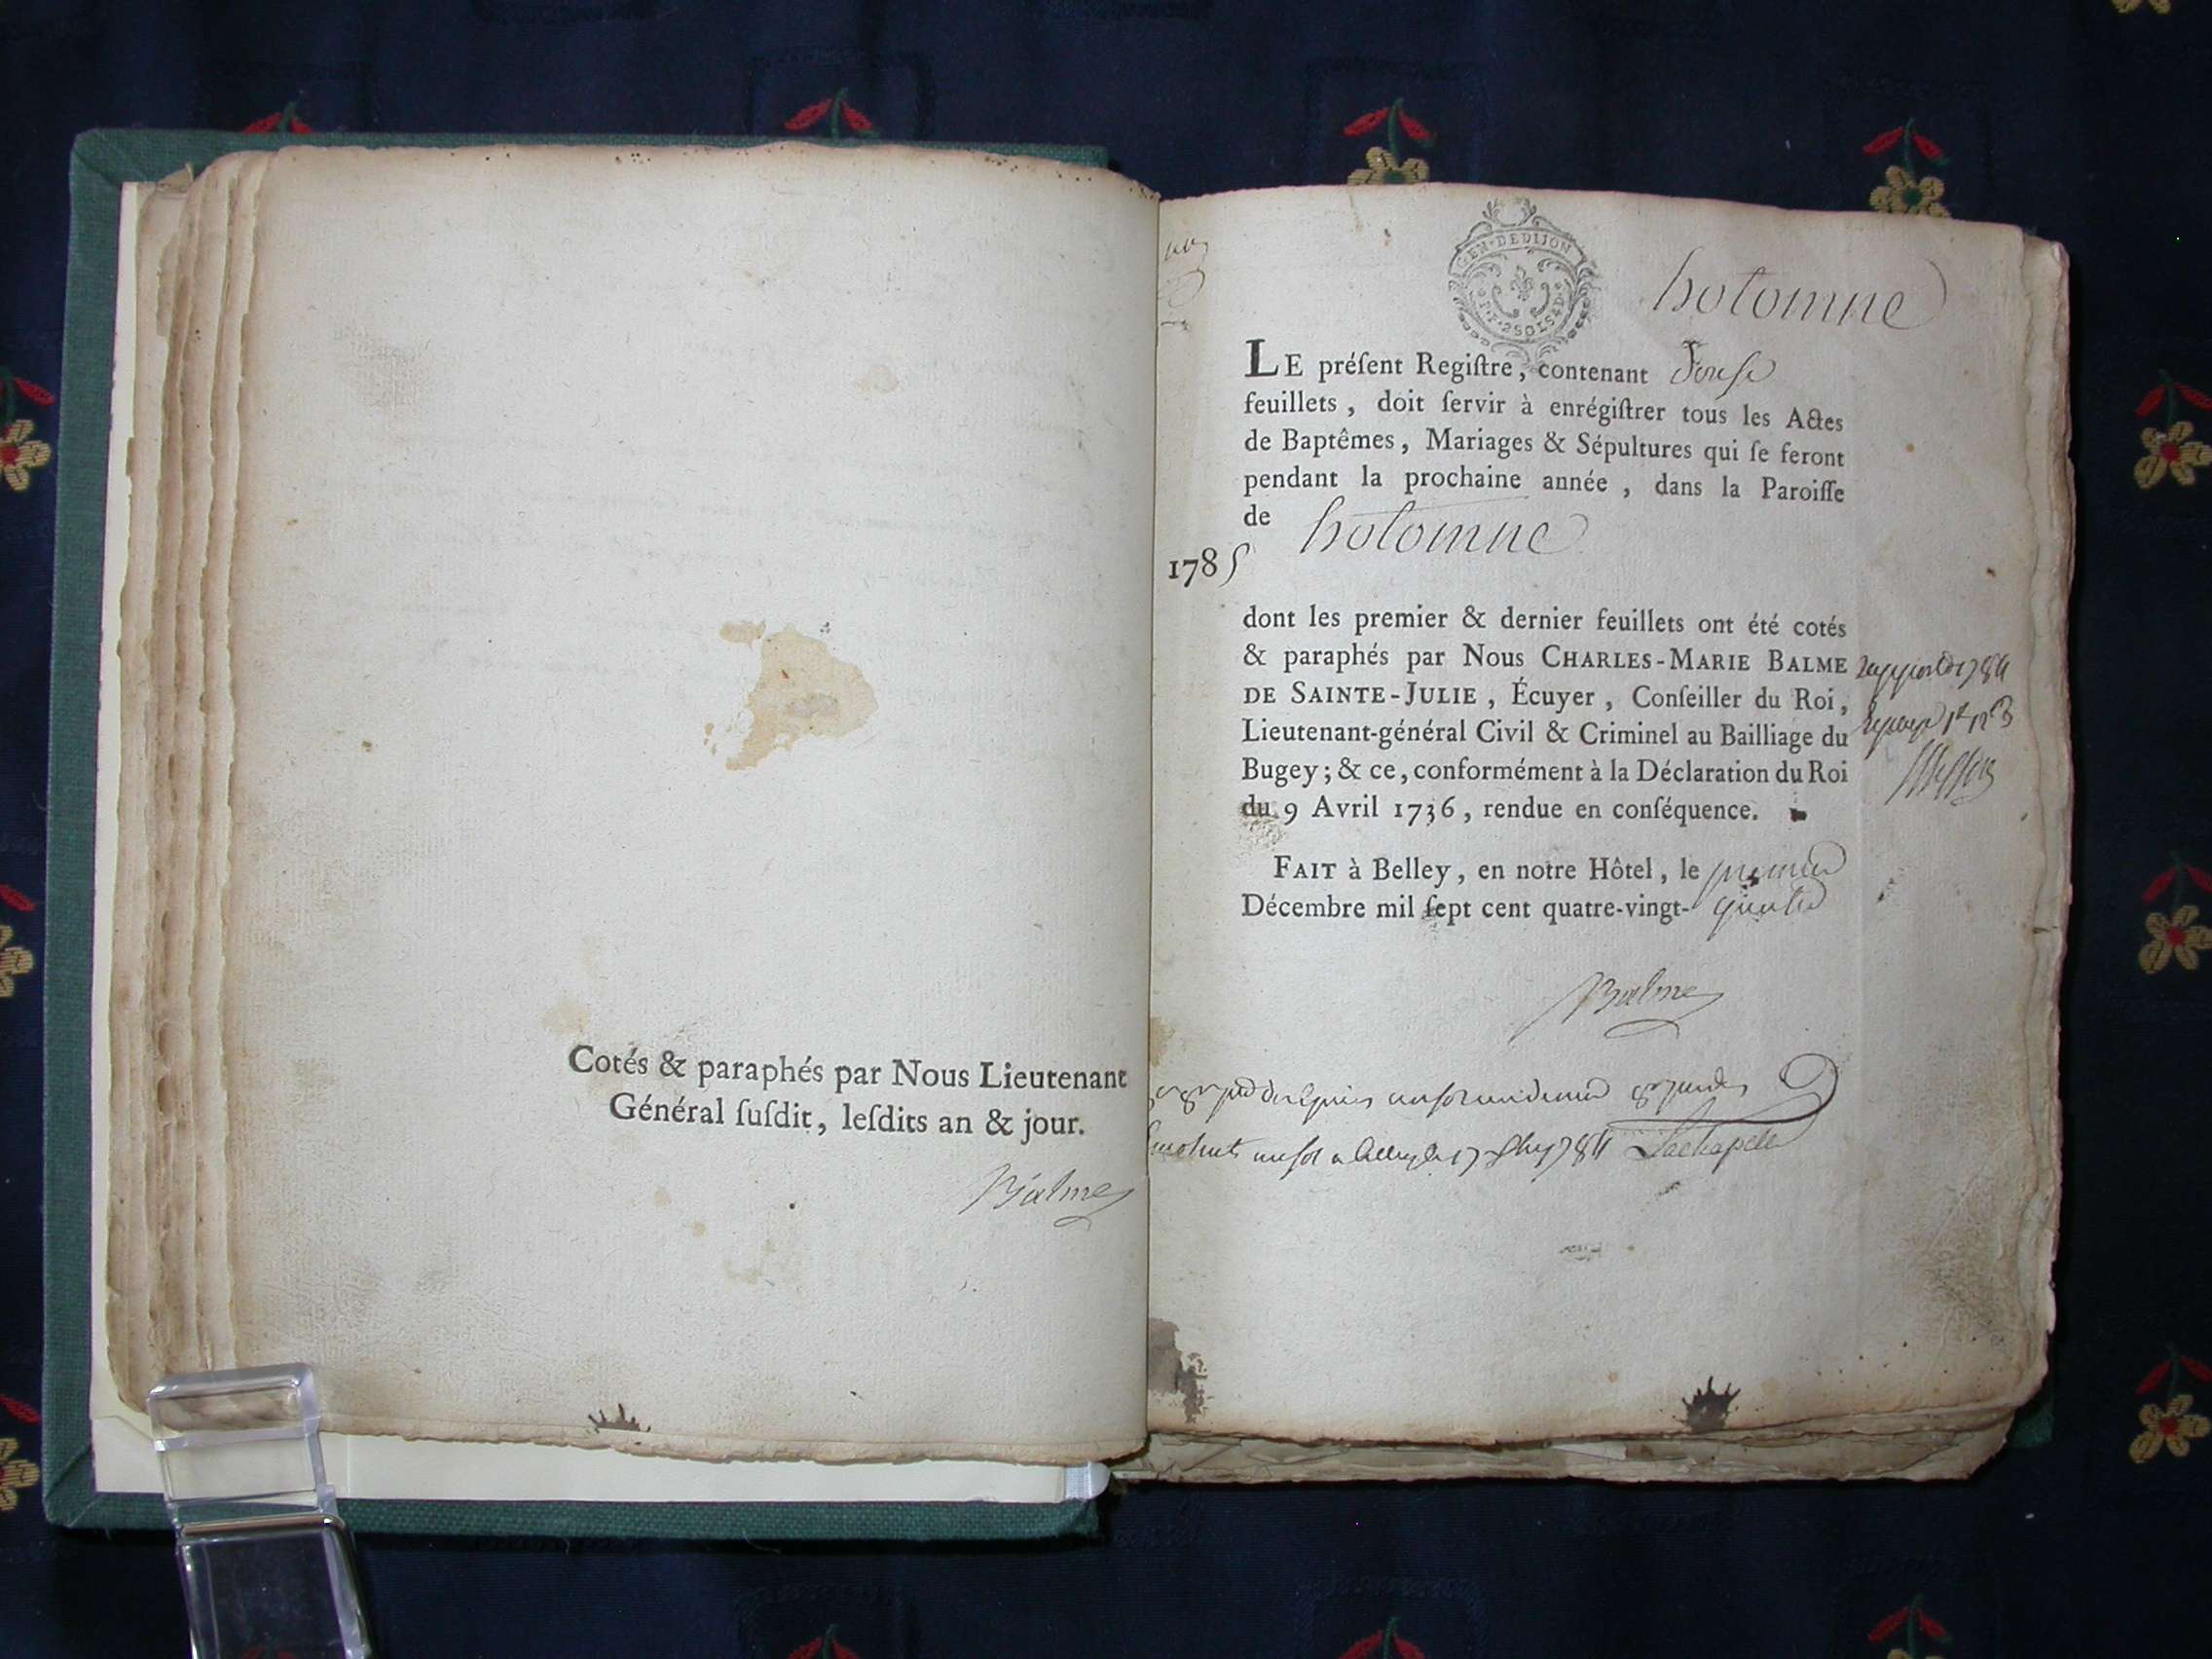 Cotés & paraphés par Nous Lieutenant
Général ſuſdit, leſdits an & jour.
Balme
GEN·DE DIJON
hotonne
LE préſent Regiſtre, contenant Douſe
feuillets, doit ſervir à enrégiſtrer tous les Actes
de Baptêmes, Mariages & Sépultures qui ſe feront
pendant la prochaine année, dans la Paroiſſe
de hotonne
1785
dont les premier & dernier feuillets ont été cotés
& paraphés par Nous CHARLES-MARIE BALME
DE SAINTE-JULIE, Écuyer, Conſeiller du Roi,
Lieutenant-général Civil & Criminel au Bailliage du
Bugey; & ce, conformément à la Déclaration du Roi
du 9 Avril 1736, rendue en conſéquence.
FAIT à Belley, en notre Hôtel, le premier
Décembre mil ſept cent quatre-vingt-quatre
Balme
Lachapelle